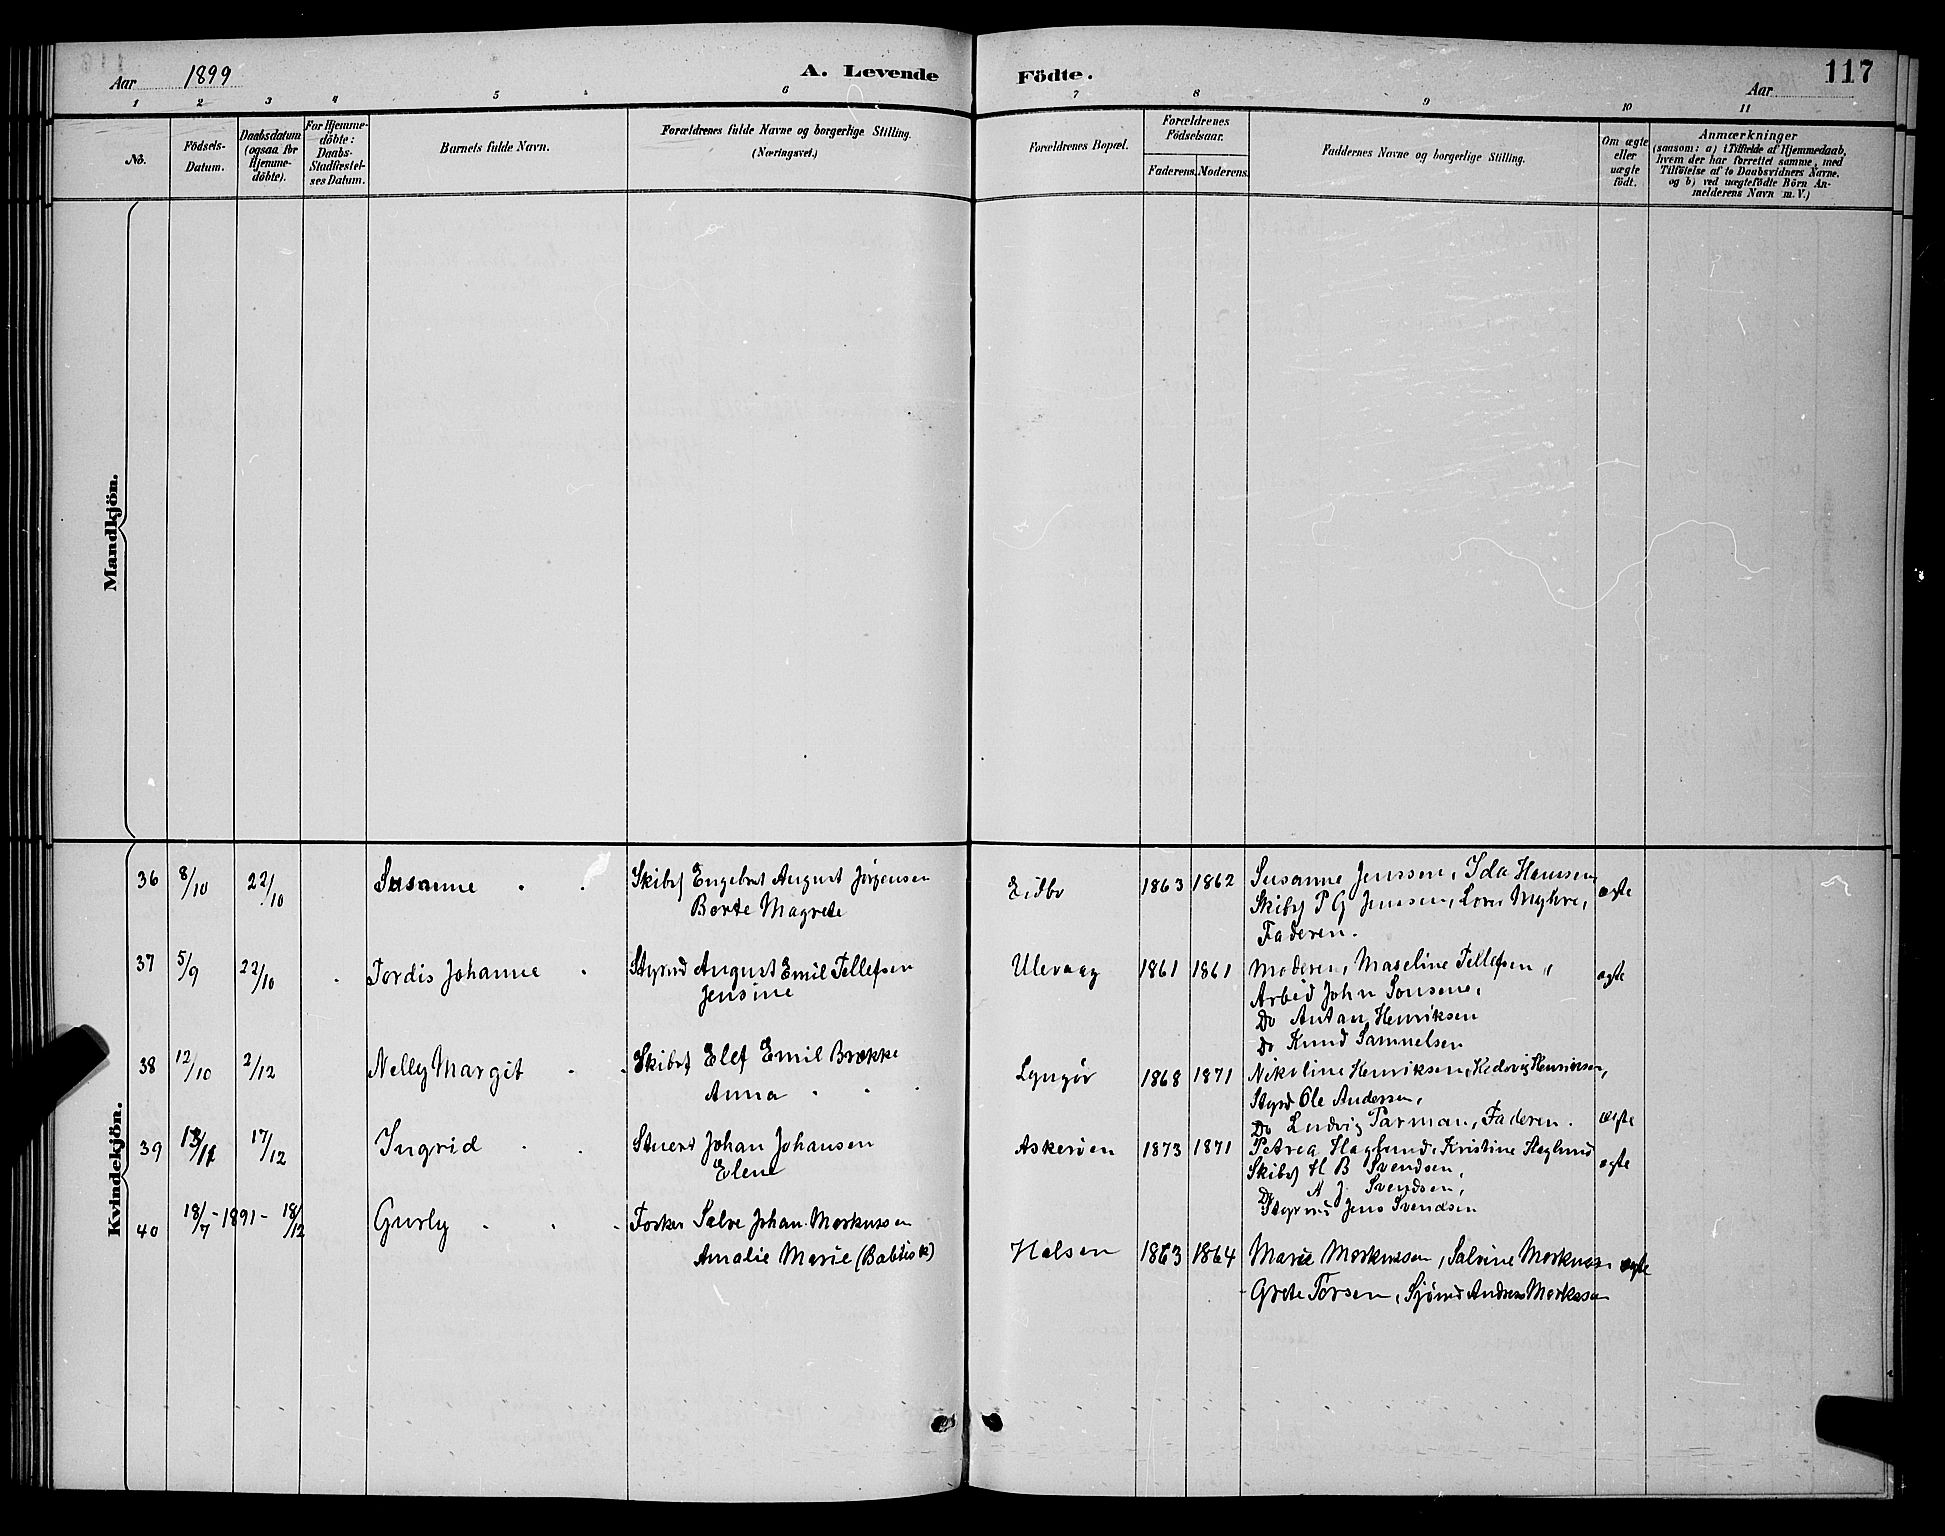 Aar 1899
A. Levende Födte.
Aar
117
1 2 3 4 5 6 7 8 9 10 11
No.
Födsels-Datum.
Daabsdatum (ogsaa for Hjemme-döbte).
For Hjemme-döbte: Daabs-Stadfæstel-ses Datum.
Barnets fulde Navn.
Forældrenes fulde Navne og borgerlige Stilling.
(Næringsvei.)
Forældrenes Bopæl.
Forældrenes Födselsaar.
Faderens. Moderens.
Faddernes Navne og borgerlige Stilling.
Om ægte eller uægte födt.
Anmærkninger
(saasom: a) i Tilfælde af Hjemmedaab,
hvem der har forrettet samme, med
Tilföielse af to Daabsvidners Navne.
og b) ved uægtefödte Börn An-
melderens Navn m. V.)
Mandkjön.
Kvindekjön.
36 8/10 22/10 Susanne Skibsf Engebret August Jörgensen Eidbo 1863 1862 Susanne Jenssen, Ida Hanssen ægte
Berte Magrete Skibsf P G Jenssen, Lovis Myhre,
Faderen.
37 5/9 22/10 Tordis Johanne Styrmd August Emil Tellefsen Ulevaag 1861 1861 Moderen, Maseline Tellefsen, ægte
Jensine Arbeid John Sonsene,
Do Antan Henriksen
Do Knud Samuelsen
38 12/10 2/12 Nelly Margit Skibsf Elef Emil Brække Lyngör 1868 1871 Nikoline Henriksen, Hedevig Henriksen,
Anna Styrd Ole Andersen,
Do Ludvig Parman, Faderen. ægte
39 13/11 17/12 Ingrid Stuert Johan Johansen Askeröen 1873 1871 Petrea Haglund, Kristine Haglund ægte
Elene Skibsf H B Svendsen,
Do A J Svendsen,
Styrmd Jens Svendsen
40 18/7 - 1891 - 18/12 Gurly Fosker Salve Johan Markussen
Amalie Marie (Babtist) Halsen 1863 1864 Marie Markussen, Salvine Markussen ægte
Grete Torsen, Sjömd Andreas Markussen